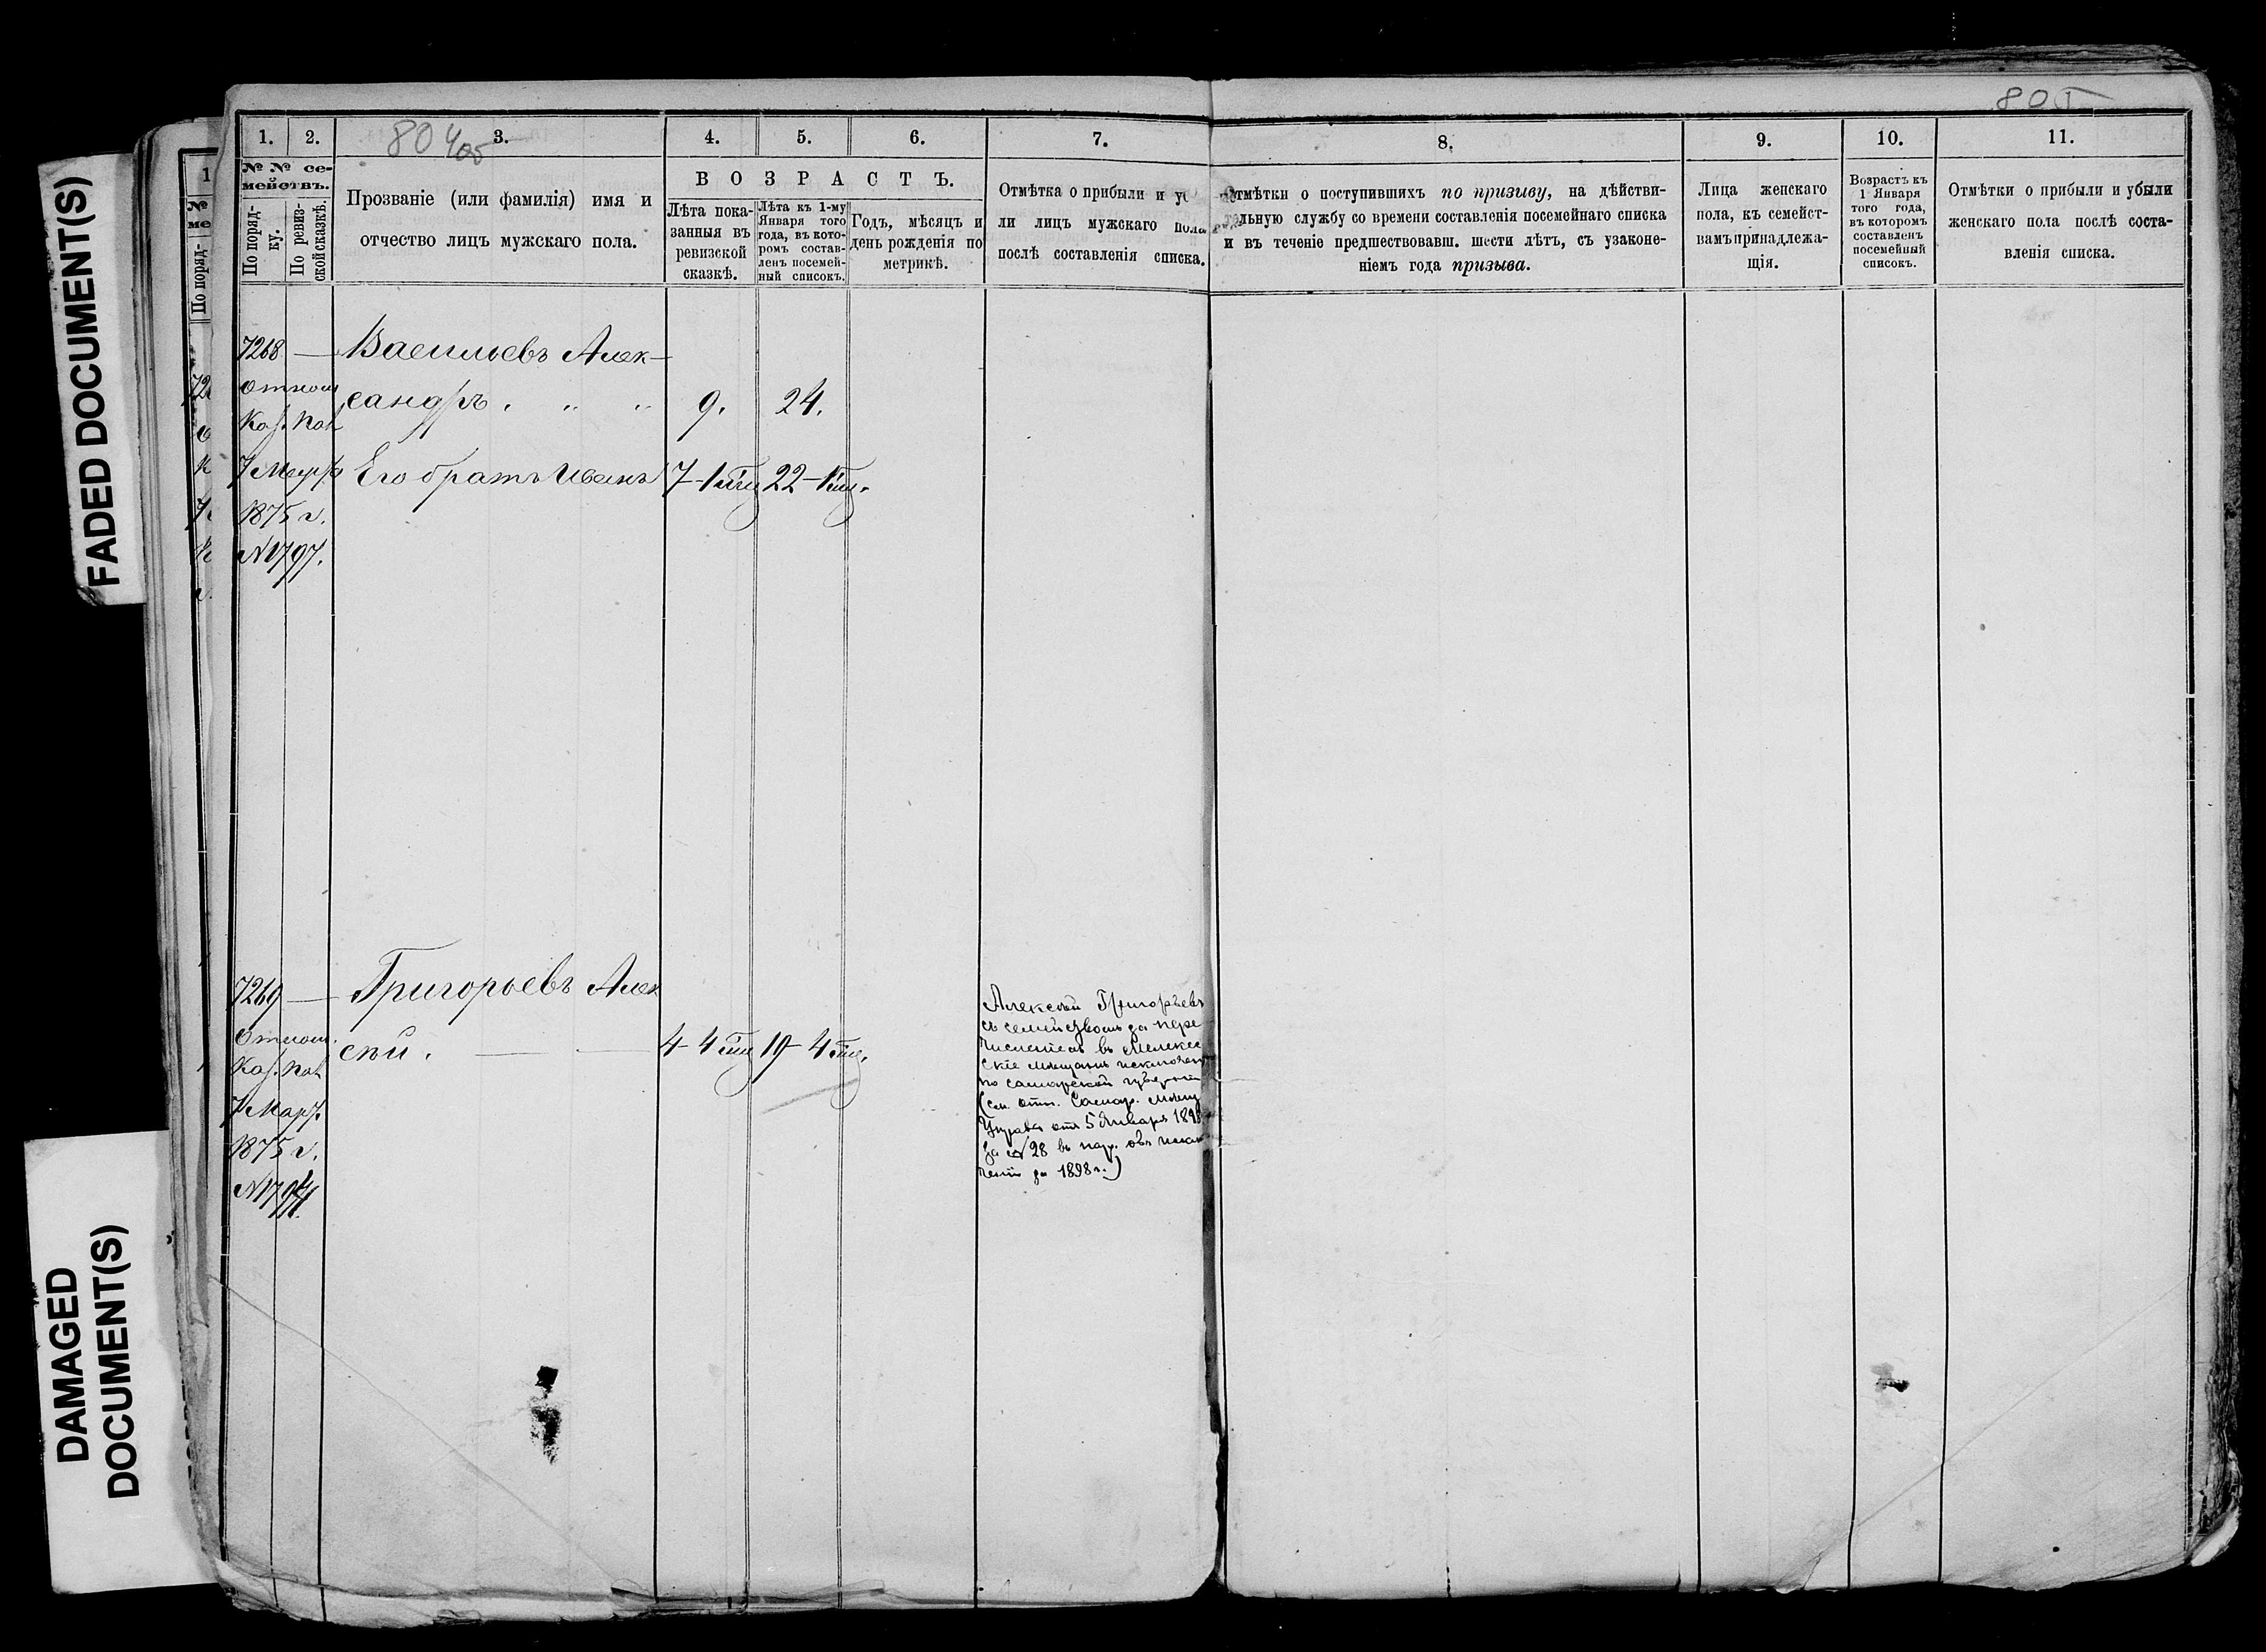 FADED DOCUMENT(S)
DAMAGED
DOCUMENT(S)
804
805
1.
2.
3.
4.
5.
6.
7.
8.
9.
10.
11.
№ № се-
мействъ.
По поряд-
ку.
По ревиз-
ской сказкѣ.
Прозваніе (или фамилія) имя и
отчество лицъ мужскаго пола.
ВОЗРАСТЪ.
Лѣта пока-
занныя въ
ревизской
сказкѣ.
Лѣта къ 1-му
Января того
года, въ кото-
ромъ состав-
ленъ посемей-
ный списокъ.
Годъ, мѣсяцъ и
день рожденія по
метрикѣ.
Отмѣтка о прибыли и у
ли лицъ мужскаго пола
послѣ составленія списка.
Отмѣтки о поступившихъ по призыву, на дѣйстви-
тельную службу со времени составленія посемейнаго списка
и въ теченіе предшествовавш. шести лѣтъ, съ узаконе-
ніемъ года призыва.
Лица женскаго
пола, къ семейст-
вамъ принадлежа-
щія.
Возрастъ къ
1 Января
того года,
въ которомъ
составленъ
посемейный
списокъ.
Отмѣтки о прибыли и убыли
женскаго пола послѣ соста-
вленія списка.
7268 — Васильевъ Алек-
сандръ. " " 9. 24.
Отнош.
Каз. Пал.
7 Марта
1875 г.
№ 1797.
Его братъ Иванъ 7-1 22-1
7269 — Григорьевъ Алек
сѣй. — — 4-4 19-4
Отнош.
Каз. Пал.
7 Март.
1875 г.
Алексѣй Григорьевъ
съ семействомъ за пере
численіемъ въ Мелекес
скіе мѣщане исключенъ
по Самарской губерніи
(см. отн. Самар. мѣщ.
Управы отъ 5 Января
за № 28 въ
до 1898 г.)